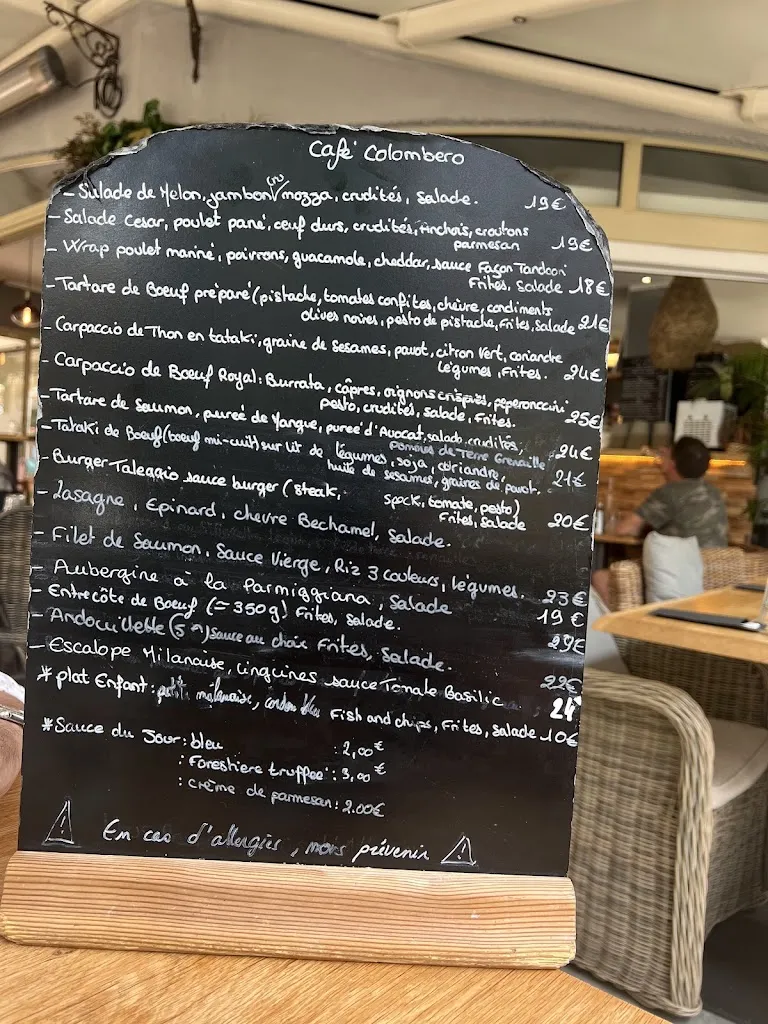 Café Colombero
- Salade de Melon, jambon cru mozza, crudités, Salade. 19€
- Salade Cesar, poulet pané, œuf durs, crudités, Anchois, croutons
parmesan 19€
- Wrap poulet mariné, poivrons, guacamole, cheddar, sauce Façon Tandoori
Frites, Salade 18€
- Tartare de Boeuf préparé (pistache, tomates confites, chèvre, condiments
olives noires, pesto de pistache, Frites, Salade 21€
- Carpaccio de Thon en tataki, graine de sesames, pavot, citron Vert, coriandre
Légumes, Frites. 24€
- Carpaccio de Boeuf Royal: Burrata, câpres, oignons crispies, peperonccini
pesto, crudités, salade, Frites. 25€
- Tartare de Saumon, pureé de Mangue, pureé d'Avocat, salade, crudités,
pommes de Terre Grenaille 24€
- Tataki de Boeuf (boeuf mi-cuit) sur lit de légumes, soja, coriandre,
huile de sesames, graines de pavot. 21€
- Burger Taleggio sauce burger (steak,
speck, tomate, pesto)
Frites, Salade 20€
- Lasagne, Epinard, chevre Bechamel, Salade.
- Filet de Saumon, Sauce Vierge, Riz 3 couleurs, légumes. 23€
- Aubergine a la Parmiggiana, Salade 19€
- Entrecôte de Boeuf (= 350g! Frites, Salade. 29€
- Andouillette (5 A) Sauce au choix Frites, Salade. 22€
- Escalope Milanaise, Linguines, sauce Tomate Basilic 24
* plat Enfant: petit milanaise, cordon bleu Fish and chips, Frites, Salade 10€
* Sauce du Jour: bleu : 2,00€
: Forestiere truffée : 3,00€
: crème de parmesan: 2.00€
En cas d'allergies, nous prévenir